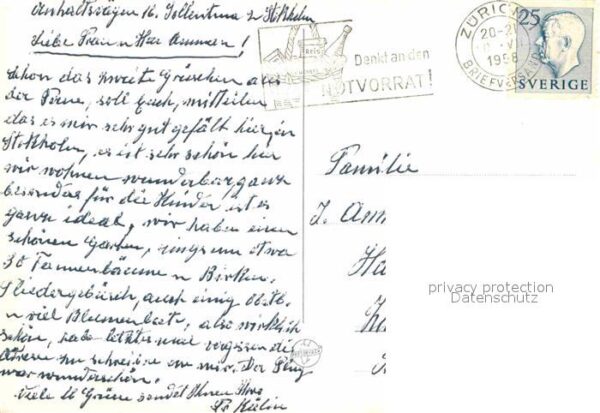 Anhaltsvägen 16, Sollentuna 2 Stokholm
Liebe Frau n Herr Ammen!
Schon das zweite Grüschen aus
der Ferne, soll Euch, mitteilen
das es mir sehr gut gefällt hier, in
Stokholm, es ist sehr schön hier
wir wohnen wunderbar, ganz
besonders für die Kinder ist es
ganz ideal, wir haben einen
schönen Garten, rings um etwa
30 Tannenbäume n Birken,
Fliedergebüsch, auch einig Obstb.
n viel Blumenbeete, also wirklich
schön, habe letztes mal vergessen die
Adresse zu schreiben von mir. Der Flug
war wunderschön.
Viele lb Grüsse sendet Ihnen Ihre
Fr Kälin
Denkt an den
NOTVORRAT!
ZÜRICH
20-21
1958
BRIEFVERSAND
25
SVERIGE
Familie
J. Am
Ha
privacy protection
Datenschutz